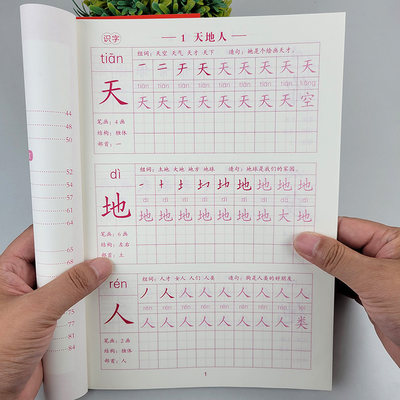 识字
1 天地人
tiān
组词：天空 天气 天才 天下 造句：她是个绘画天才。
天
天 天 天 天 天 天
tiān tiān tiān tiān tiān tiān tiān tiān kōng
天 天 天 天 天 天 天 天 空
笔画：4画
结构：独体
部首：一
dì
组词：土地 大地 地方 地球 造句：地球是我们的家园。
地
地 地 地 地
dì dì dì dì dì dì dì dà dì
地 地 地 地 地 地 地 大 地
笔画：6画
结构：左右
部首：土
rén
组词：人才 女人 人们 人类 造句：狗是人类的好朋友。
人
丿 人 人 人 人 人 人 人 人
rén rén rén rén rén rén rén rén lèi
人 人 人 人 人 人 人 人 类
笔画：2画
结构：独体
部首：人
1
44
48
50
52
54
57
64
65
68
75
77
84